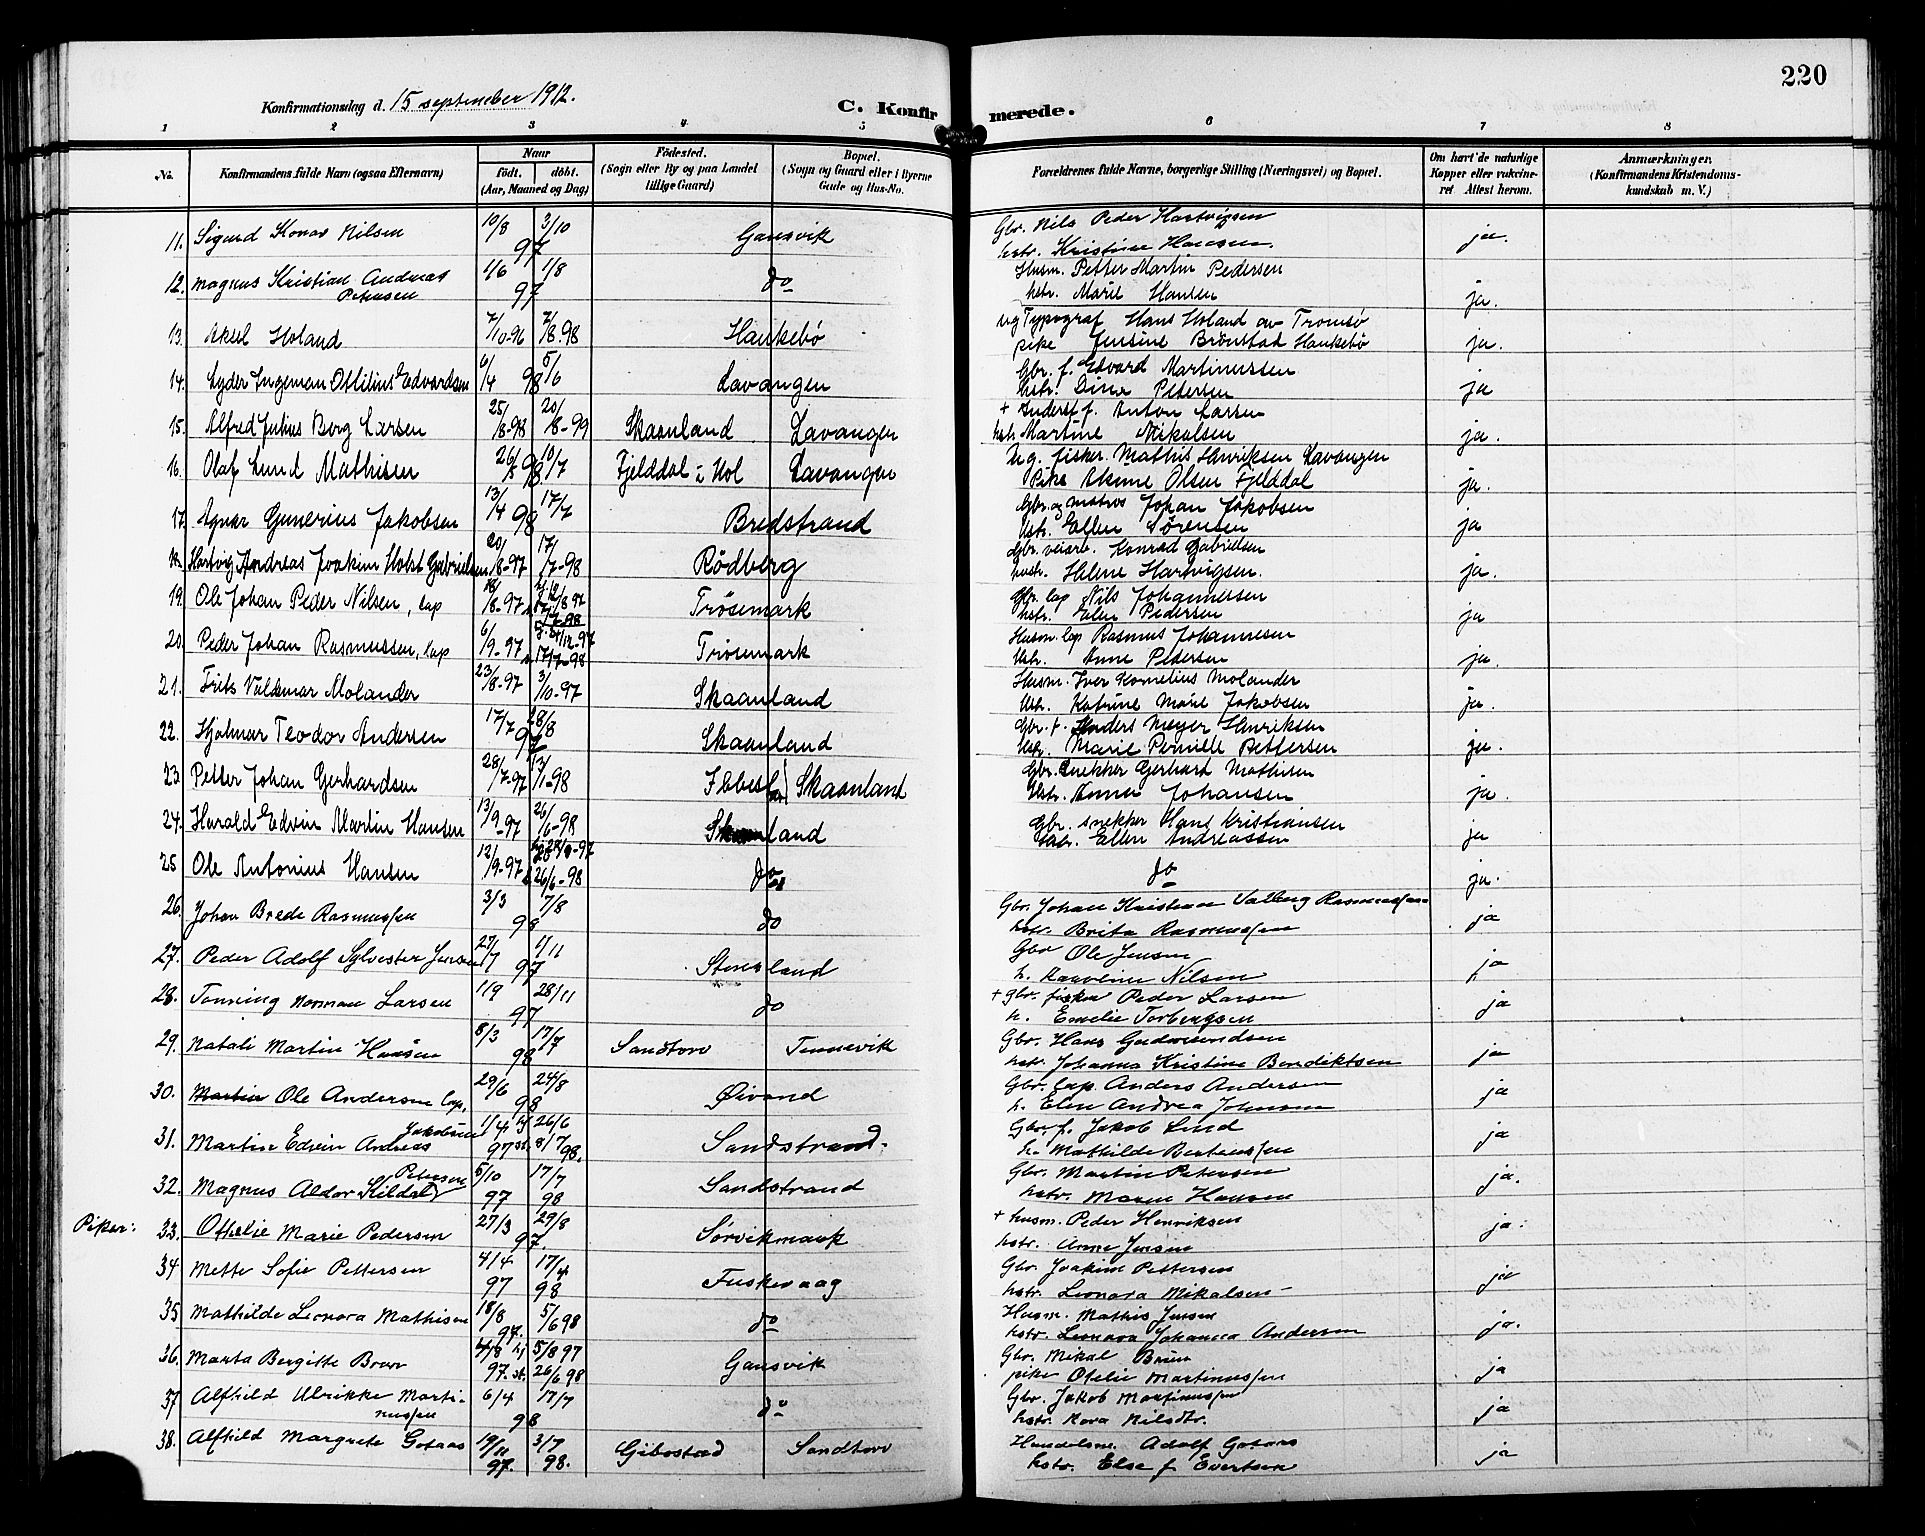 220
Konfirmationsdag d. 15 september 1912.
C. Konfirmerede.
1 2 3 4 5 6 7 8
No.
Konfirmandens fulde Navn (ogsaa Efternavn)
Naar
født. døbt.
(Aar, Maaned og Dag)
Fødested.
(Sogn eller By og paa Landet tillige Gaard)
Bopæl.
(Sogn og Gaard eller i Byerne Gade og Hus-No.
Forældrenes fulde Navne, borgerlige Stilling (Næringsvei) og Bopæl.
Om havt de naturlige Kopper eller vakcineret Attest herom.
Anmærkninger.
(Konfirmandens Kristendomskundskab m. V.)
11. Sigurd Konar Nilsen 10/8 3/10 97 Gausvik Gbr. Nils Peder Hartvigsen ja.
hstr. Kristine Hansen.
12. Magnus Kristian Andreas Petersen 1/6 1/8 97 do Husm. Petter Martin Pedersen
hstr. Marie Hansen ja.
13. Aksel Holand 7/10-96 7/8.98 Haukebø ug Typograf Hans Holand av Tromsø
pike Jensine Brönstad Haukebø ja.
14. Lyder Ingeman Ottilius Edvardsen 6/4 5/6 98 Lavangen Gbr. f. Edvard Martinussen
hstr. Dina Petersen ja
15. Alfred Julius Borg Larsen 25/8-98 20/8-99 Skaanland Lavangen + Inderst f. Anton Larsen
hstr Martine Mikalsen ja.
16. Olaf Lund Mathisen 26/5 10/7 98 Fjelddal i Hol Lavangen Ug. fisker Mathis Henriksen Lavangen
Pike Olsen Fjelddal ja.
17. Agnar Gunerius Jakobsen 13/4 17/7 98 Bredstrand Gbr. og matros Johan Jakobsen
Hstr. Ellen Sørensen ja
18. Hartvig Andreas Joakim Holst Gabrielsen 20/8-97 17/7-98 Rödberg Gbr. veiarb. Konrad Gabrielsen
hustr. Helene Hartvigsen. ja.
19. Ole Johan Peder Nilsen, lap 18/8-97 12/8 97 17/7-98 Trösemark Gbr. lap Nils Johannessen
hstr. Elen Pedersen ja
20. Peder Johan Rasmussen, lap 6/9-97 /12-97 17/7-98 Trösemark Husm. lap Rasmus Johannesen
Hstr. Anne Pedersen ja.
21. Frits Valdemar Molander 23/8-97 3/10-97 Skaanland Husm. Iver Kornelius Molander
Hstr. Katrine Marie Jakobsen ja.
22. Hjalmar Teodor Andersen 17/7 28/8 97 Skaanland Gbr. f. Anders Meyer Henriksen
Hstr. Marie Pernille Pettersen ja.
23. Petter Johan Gerhardsen 28/7-97 13/1-98 Ibbestad Skaanland Gbr. Snekker Gerhart Mathisen
Hstr. Anna Johansen ja.
24. Harald Edvin Martin Hansen 13/9-97 26/6-98 Skaanland Gbr. snekker Hans Kristiansen
Hstr. Ellen Andreassen ja
25 Ole Antonius Hansen 12/9-97 26/6-98 do do ja.
26. Johan Brede Rasmussen 3/3 7/8 98 do Gbr. Johan Kristian Salberg Rasmussen
hstr. Brita Rasmussen ja
27. Peder Adolf Sylvester Jensen 27/7 1/11 97 Steensland Gbr Ole Jensen
h. Karoline Nilsen ja
28. Tonning Norman Larsen 1/9 28/11 97 do + gbr. fisker Peder Larsen
h. Emelie Torbergsen ja
29. Natali Martin Hansen 8/3 17/7 98 Sandtorv Tennevik Gbr. Hans Gudmundsen
hstr. Johanna Kristine Bendiktsen ja
30. Martin Ole Andersen lap. 29/6 24/8 98 Øivand Gbr. lap. Anders Andersen
h. Elen Andrea Johnsen ja
31. Martin Edvin Andreas Jakobsen 1/4 97 hj 26/6 st. 8/7 98. Sandstrand. Gbr. f. Jakob Lind
h. Mathilde Bertenssen ja
32. Magnus Aldor Kildal Petersen 5/10 97 17/7 98 Sandstrand Gbr. Martin Petersen
hstr. Maren Hansen ja.
Piker:
33. Othelie Marie Pedersen 27/3 29/8 97. Sørvikmark + husm. Peder Henriksen
hstr. Anne Jensen ja.
34 Mette Sofie Pettersen 4/4 97 17/4 98 Fuskevaag Gbr. Joakim Pettersen
hstr. Leonora Mikalsen ja
35 Mathilde Leonora Mathisen 18/8 97. 5/6 98 do Husm. Mathis Jensen
hstr. Leonora Johanna Andersen ja.
36. Marta Bergitte Brun 4/8 97. hj 5/8 97 st. 26/6 98 Gausvik Gbr. Mikal Brun
pike Otelie Martinussen ja
37 Alfhild Ulrikke Martinussen 6/4 17/7 98 do Gbr. Jakob Martinussen
hstr. Nora Nilsdtr. ja
38. Alfhild Margrete Gotaas 19/11 97. 3/7 98. Gibostad Sandtorv Handelsm. Adolf Gotaas
hstr. Else f. Evertsen ja